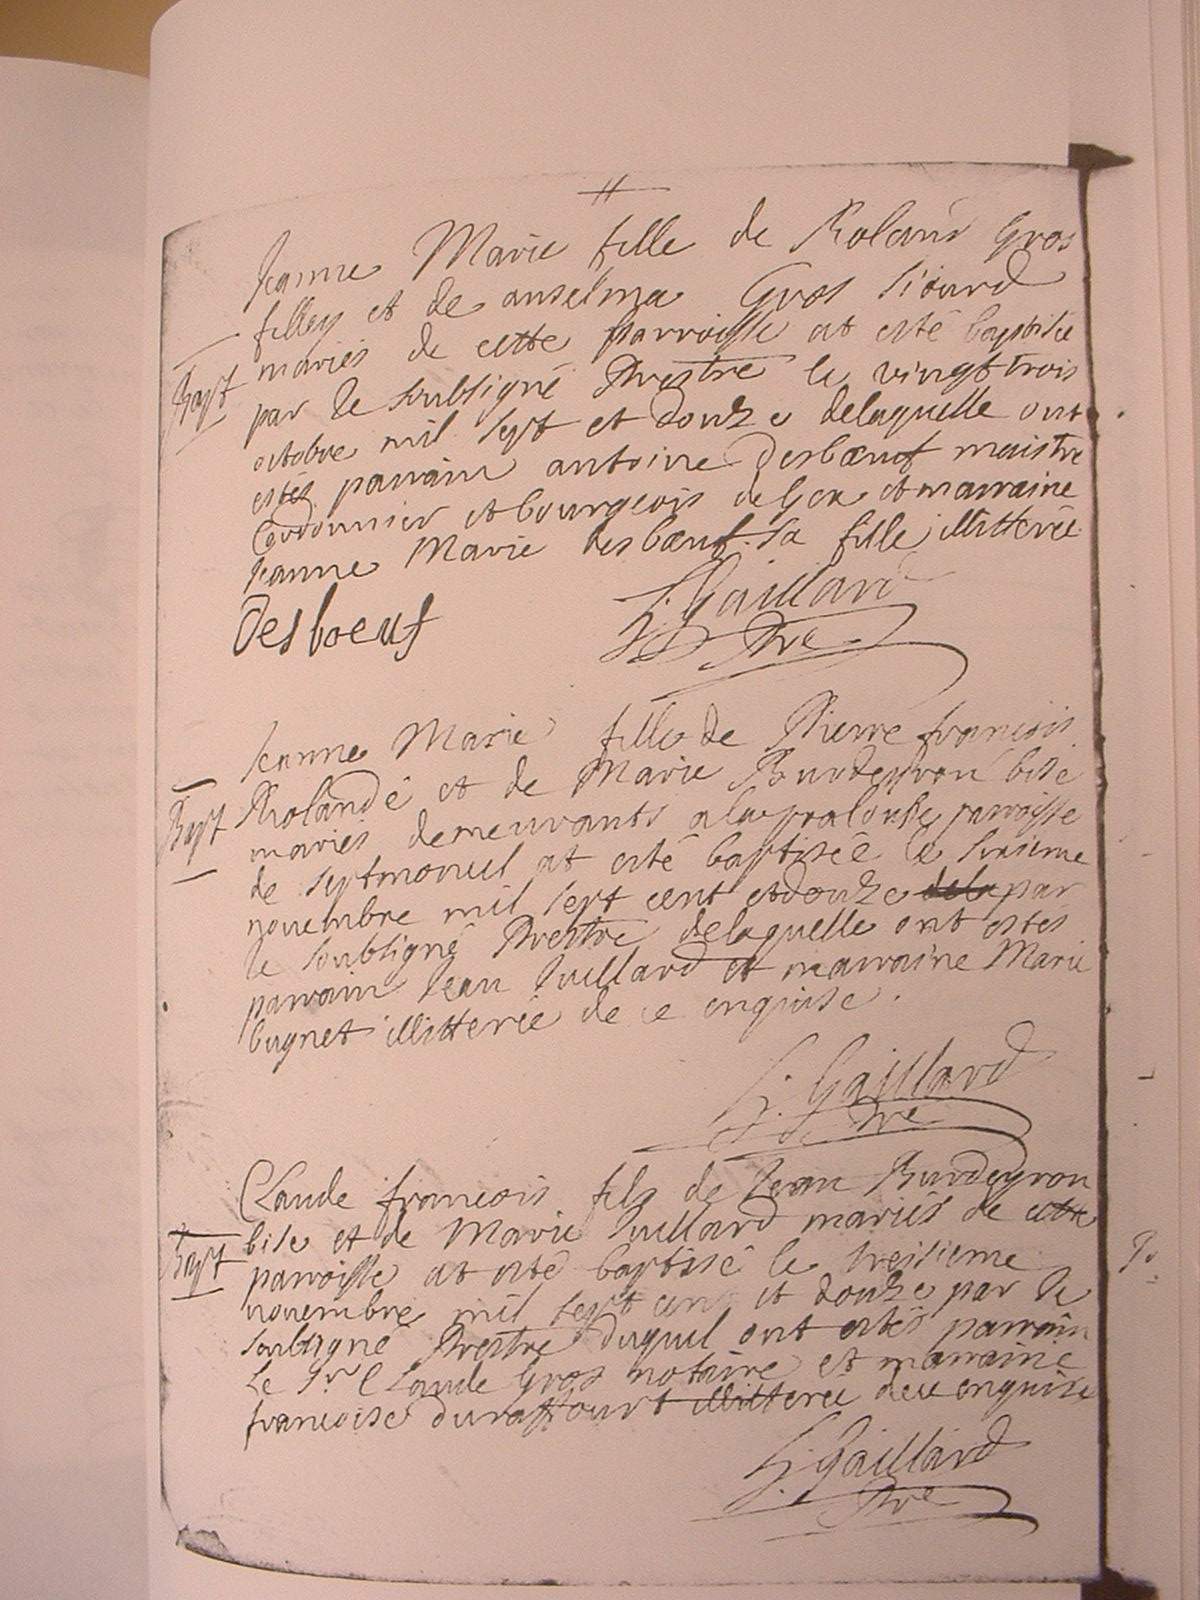 Jeanne Marie fille de Roland Gros
filley et de anselma Gros Siourd
mariés de cette parroisse at esté baptisée
Bapt
par le soubsigné Prestre le vingt trois
octobre mil sept et douze delaquelle ont
estés parrain antoine Desboeuf maistre
Cordonnier et bourgeois de Gex et marraine
Jeanne Marie desboeuf sa fille illitterée
Desboeuf
Gaillard
Pre
Jeanne Marie fille de Pierre francois
Rolande et de Marie Burdeyron bise
Bapt
mariés demeurants a parroisse
de Septmoncel at esté baptisée le sixieme
novembre mil sept cent et douze dela par
le soubsigné Prestre delaquelle ont estés
parrain Jean Juillard et marraine Marie
bugnet illitterée de ce enquise.
Gaillard
Pre
Claude francois fils de Jean Burdeyron
bise et de Marie Juillard mariés de cette
Bapt
parroisse at esté baptisé le treisieme
novembre mil sept cent et douze par le
soubsigné Prestre duquel ont estés parrain
Le Sr Claude Gros notaire et marraine
francoise duraffourt illitterée de ce enquise
Gaillard
Pre